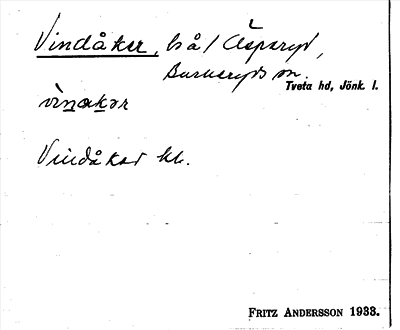 Vindåker, bå / Äsperyd,
Barkeryds sn.
Tveta hd, Jönk. l.
Vindåker kk.
FRITZ ANDERSSON 1933.